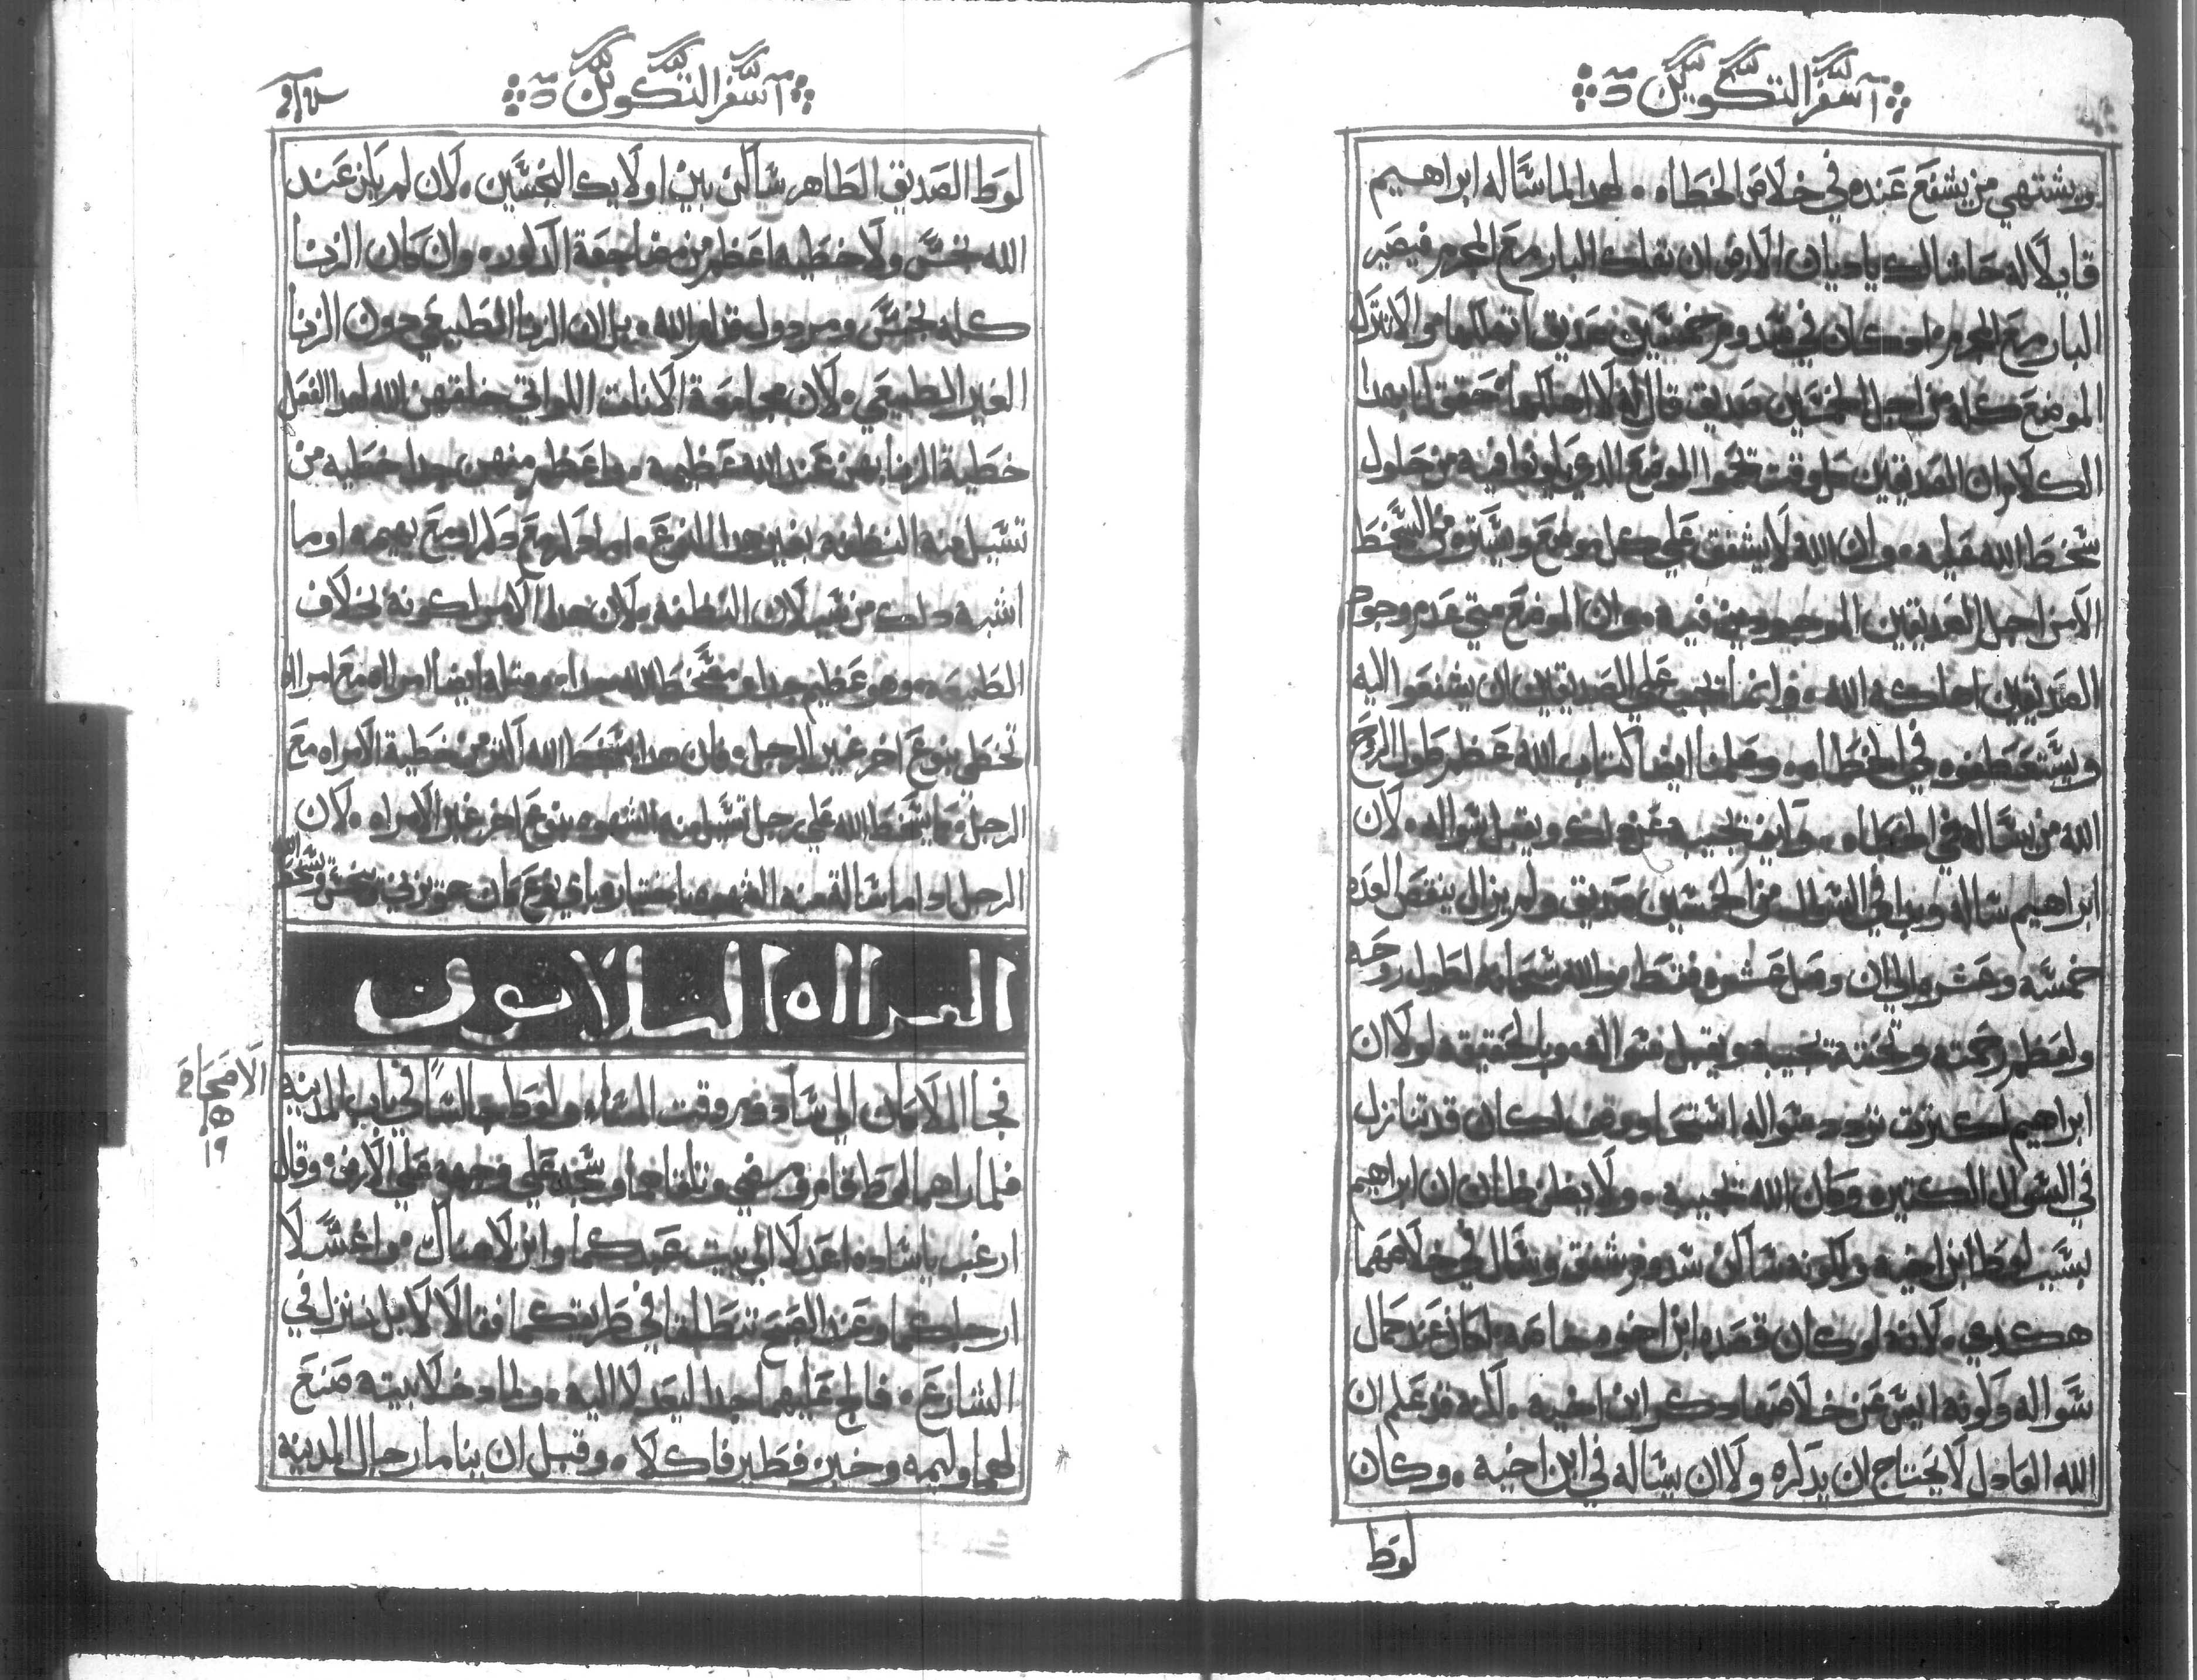 سفر التكوين
ويشتهي من يشفع عنده في خلاص الخطاه. لهدا لما ساله ابراهيم
قايلا له حاشا لك ياديان الارض ان تهلك البار مع المجرم فيصير
البار مع المجرم. لو كان في سدوم خمسين صديق اتهلكها ولا تترك
الموضع كله من اجل الخمسين صديق قال له لا اهلكها حقق لنا بهدا
الكلام ان الصديقين وقت الموضع الدي يكونوا فيه من حلول
سخط الله عليه. وان الله لا يشفق علي كل موضع من السخط
الا من اجل الصديقين الموجودين فيه. وان الموضع متي عدم وجود
الصديقين اهلكه الله. وانما يجب علي الصديقين ان يشفعوا اليه
ويستعطفوه في الخطاه. وعلمنا ايضا كتاب الله عظم طول الروح
الله من يساله في الخطاه. وكيف يجيبه عن دلك ويقبل سواله. لان
ابراهيم ساله وبدا في السوال من الخمسين صديق ولم يزال ينقص العده
خمسه وعشره الي ان وصل عشره فقط. والله سبحانه لطول روحه
ولعظم رحمته يجيبه ويقبل سواله. وبالحقيقه لولا ان
ابراهيم لكثرة تردد سواله استحا ووقف لكان قد تنازل
في السوال الكتير. وكان الله يجيبه. ولا يظن ظان ان ابراهيم
بسبب لوط ابن اخيه ولكونه ساكن سدوم شفق وسال في خلاصها
هكدي. لانه لو كان قصده ابن اخوه خاصه لكان عند كمال
سواله وكونه ايس من خلاصها دكر ابن اخيه. لكنه قد علم ان
الله العادل لا يحتاج ان يدكره ولا ان يساله في ابن اخيه. وكان
لوط
سفر التكوين
لوط الصديق الطاهر ساكن بين اولايك النجسين. لان لم يكن عند
الله نجس ولا خطيه اعظم من مضاجعة الدكوره. وان كان الزنا
كله نجس ومردول قدام الله. بل ان الزنا الطبيعي دون الزنا
الغير الطبيعي. لان مجامعة الانات اللواتي خلقهن الله لهدا الفعل
خطية الزنا بهن عند الله عظيمه. واعظم منهن جدا خطيه من
تسيل منه النطفه بغير هدا النوع. اما دكر مع دكر او مع بهيمه او ما
اشبه دلك من سيلان النطفه. لان هدا الامر لكونه بخلاف
الطبيعه. وهو عظيم جدا ومسخط الله جدا. ومتله ايضا امراه مع امراه
تخطي بنوع اخر غير الرجل. فان هدا يسخط الله اكتر من خطية الامراه مع
الرجل. كما يسخط الله علي رجل تسيل منه الشهوه بنوع اخر غير الامراه. لان
الرجل ادا ما سالة منه الشهوه باختياره باي نوع كان هو زني ونجس ويسخط الله
القراه التلاتون
الاصحاح
19
فجا الملاكان الي سادوم وقت المساء ولوط جالسا في باب المدينه
فلما راهما لوط قام ومضي وتلقاهما وسجد علي وجهه علي الارض. وقال
ارغب ياساده اعدلا الي بيت عبدكما وانزلا هناك. واغسلا
ارجلكما وعند الصبح تنطلقا في طريقكما فقالا لا بل ننزل في
الشارع. فالح عليهما جدا ليعدلا اليه. ولما دخلا بيته صنع
لهما وليمه وخبز فطير فاكلا. وقبل ان يناما رجال المدينه